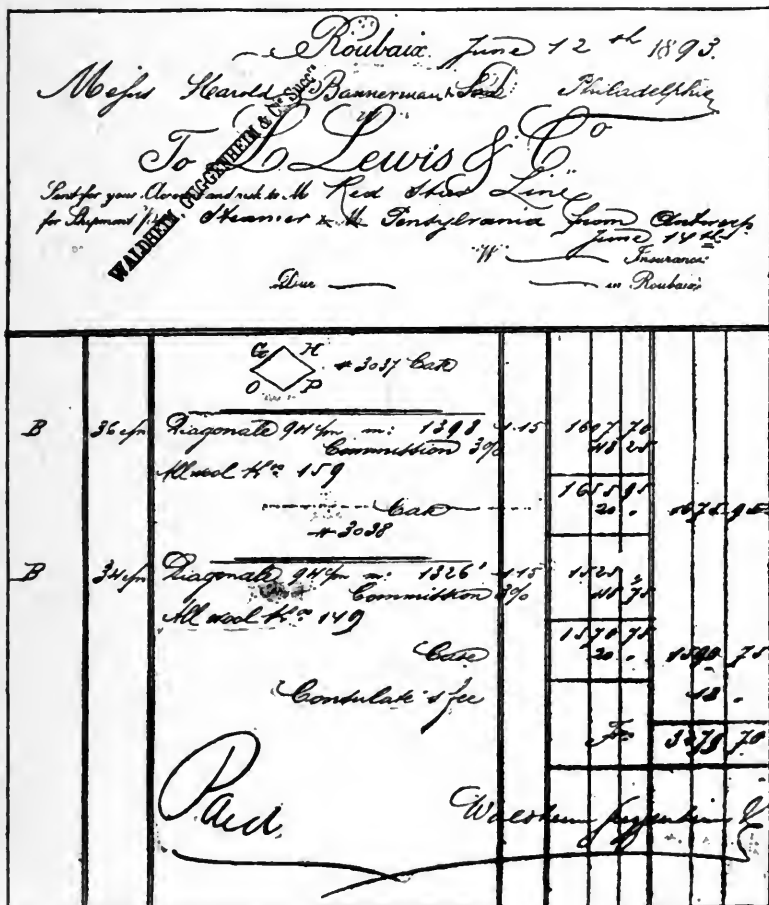 Roubaix. June 12th 1893.
Messrs Harold Bannerman & Philadelphia
WALDHEIM, GUGGENHEIM & Co Succrs
To L. Lewis & Co
Sent for your and risk to M Red Star Line
for Shipment p. Steamer Pensylvania from Antwerp
June 14th
W Insurance
Due in Roubaix
G H
# 3037 Case
O P
B 36 Diagonals 94 c/m m: 1398 1.15 1607 70
Commission 3% 48 25
All wool Kos 159
1655 95
Case 20 . 1675 95
# 3038
B 34 Diagonals 94 c/m m: 1326 1.15 1525 "
Commission 3% 45 75
All wool Kos 149
1570 75
Case 20 . 1590 75
Consulate's fee 13 .
Fcs 3279 70
Paid.
Waldheim Guggenheim &